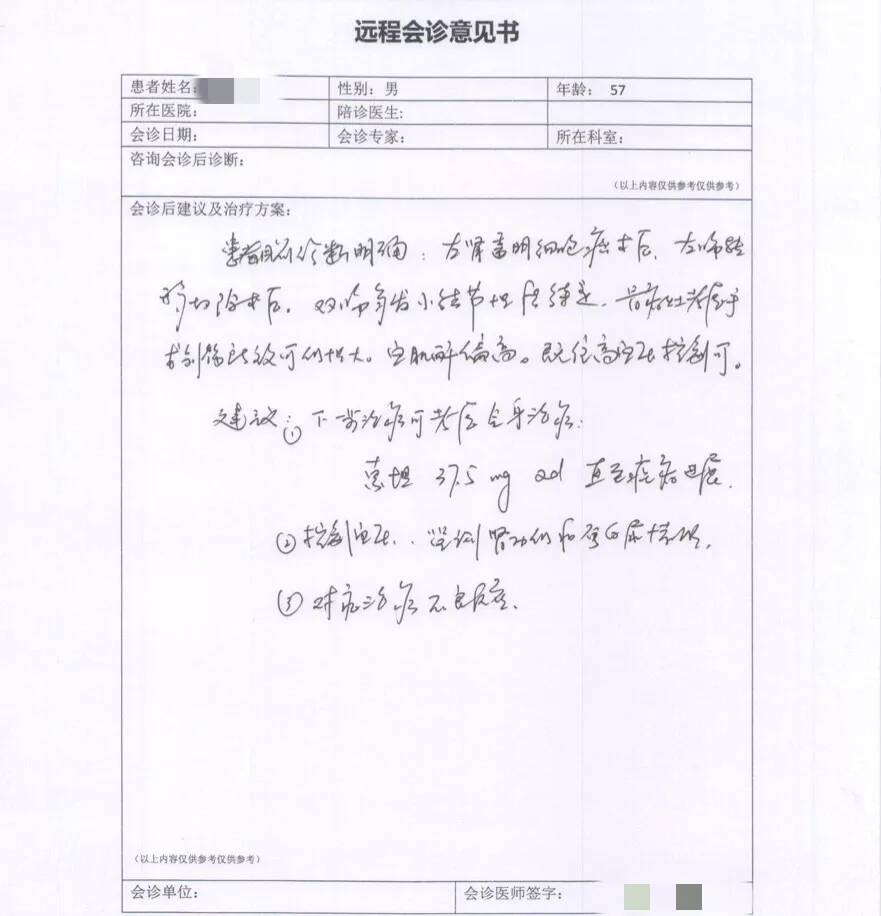 远程会诊意见书
患者姓名: 性别: 男 年龄: 57
所在医院: 陪诊医生:
会诊日期: 会诊专家: 所在科室:
咨询会诊后诊断:
(以上内容仅供参考仅供参考)
会诊后建议及治疗方案:
患者目前诊断明确: 左肾透明细胞癌术后, 左肺转
移切除术后, 双肺多发小结节
血肌酐偏高。既往高血压控制可。
建议: ① 下一步治疗可考虑全身治疗:
37.5 mg qd 直至疾病进展.
② 控制血压, 监测肾功能和蛋白尿情况,
③ 对症治疗不良反应.
(以上内容仅供参考仅供参考)
会诊单位: 会诊医师签字: